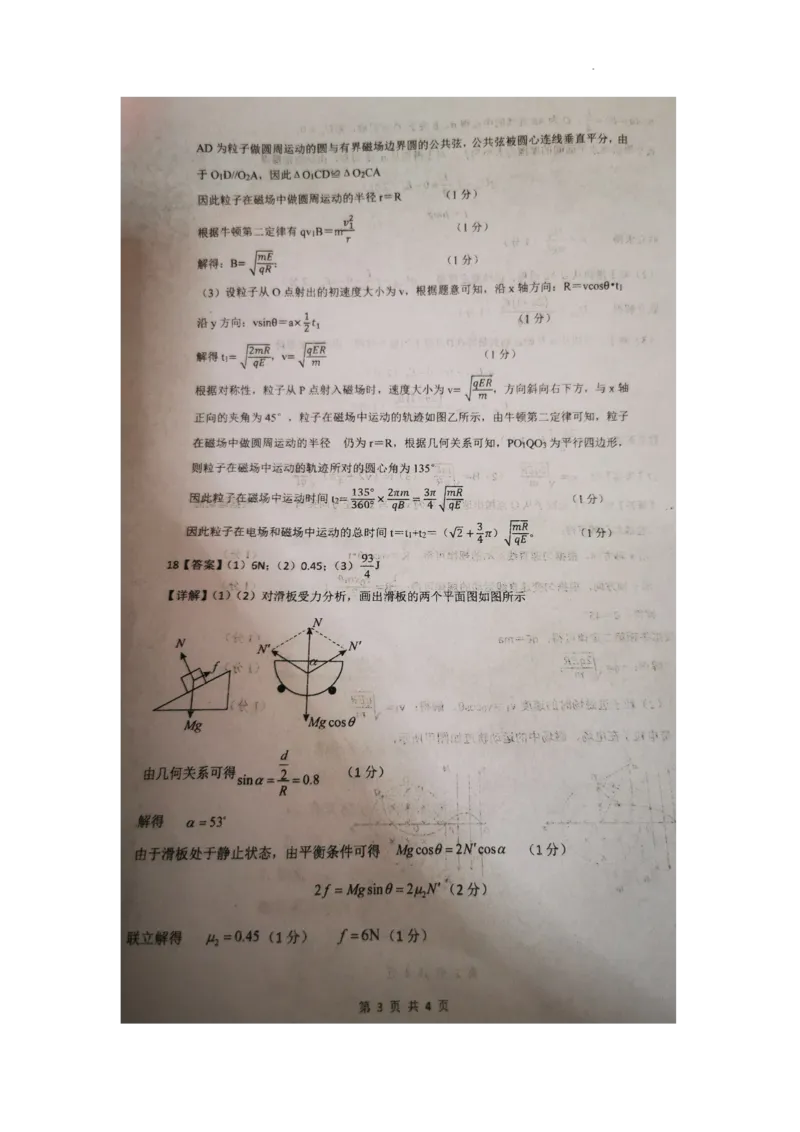 AD为粒子做圆周运动的圆与有界磁场边界圆的公共弦，公共弦被圆心连线垂直平分，由
于O₁D//O₂A，因此ΔO₁CD≌ΔO₂CA
因此粒子在磁场中做圆周运动的半径r＝R （1分）
根据牛顿第二定律有qv₁B＝m\frac{v_1^2}{r} （1分）
解得：B=\sqrt{\frac{mE}{qR}}。 （1分）
（3）设粒子从O点射出的初速度大小为v，根据题意可知，沿x轴方向：R＝vcosθ•t₁
沿y方向：vsinθ＝a×\frac{1}{2}t₁ （1分）
解得t₁＝\sqrt{\frac{2mR}{qE}}，v＝\sqrt{\frac{qER}{m}} （1分）
根据对称性，粒子从P点射入磁场时，速度大小为v＝\sqrt{\frac{qER}{m}}，方向斜向右下方，与x轴
正向的夹角为45°，粒子在磁场中运动的轨迹如图乙所示，由牛顿第二定律可知，粒子
在磁场中做圆周运动的半径 仍为r＝R，根据几何关系可知，PO₁'QO₃为平行四边形，
则粒子在磁场中运动的轨迹所对的圆心角为135°
因此粒子在磁场中运动时间t₂＝\frac{135°}{360°}×\frac{2πm}{qB}＝\frac{3π}{4}\sqrt{\frac{mR}{qE}} （1分）
因此粒子在电场和磁场中运动的总时间t＝t₁+t₂＝（√2+\frac{3}{4}π）\sqrt{\frac{mR}{qE}}。 （1分）
18【答案】（1）6N；（2）0.45；（3）\frac{93}{4}J
【详解】（1）（2）对滑板受力分析，画出滑板的两个平面图如图所示
N
N f Mg
N' α N'
Mg cosθ
由几何关系可得 sinα=\frac{\frac{d}{2}}{R}=0.8 （1分）
解得 α=53°
由于滑板处于静止状态，由平衡条件可得 Mgcosθ=2N'cosα （1分）
2f=Mgsinθ=2μ₂N'（2分）
联立解得 μ₂=0.45（1分） f=6N（1分）
第 3 页 共 4 页